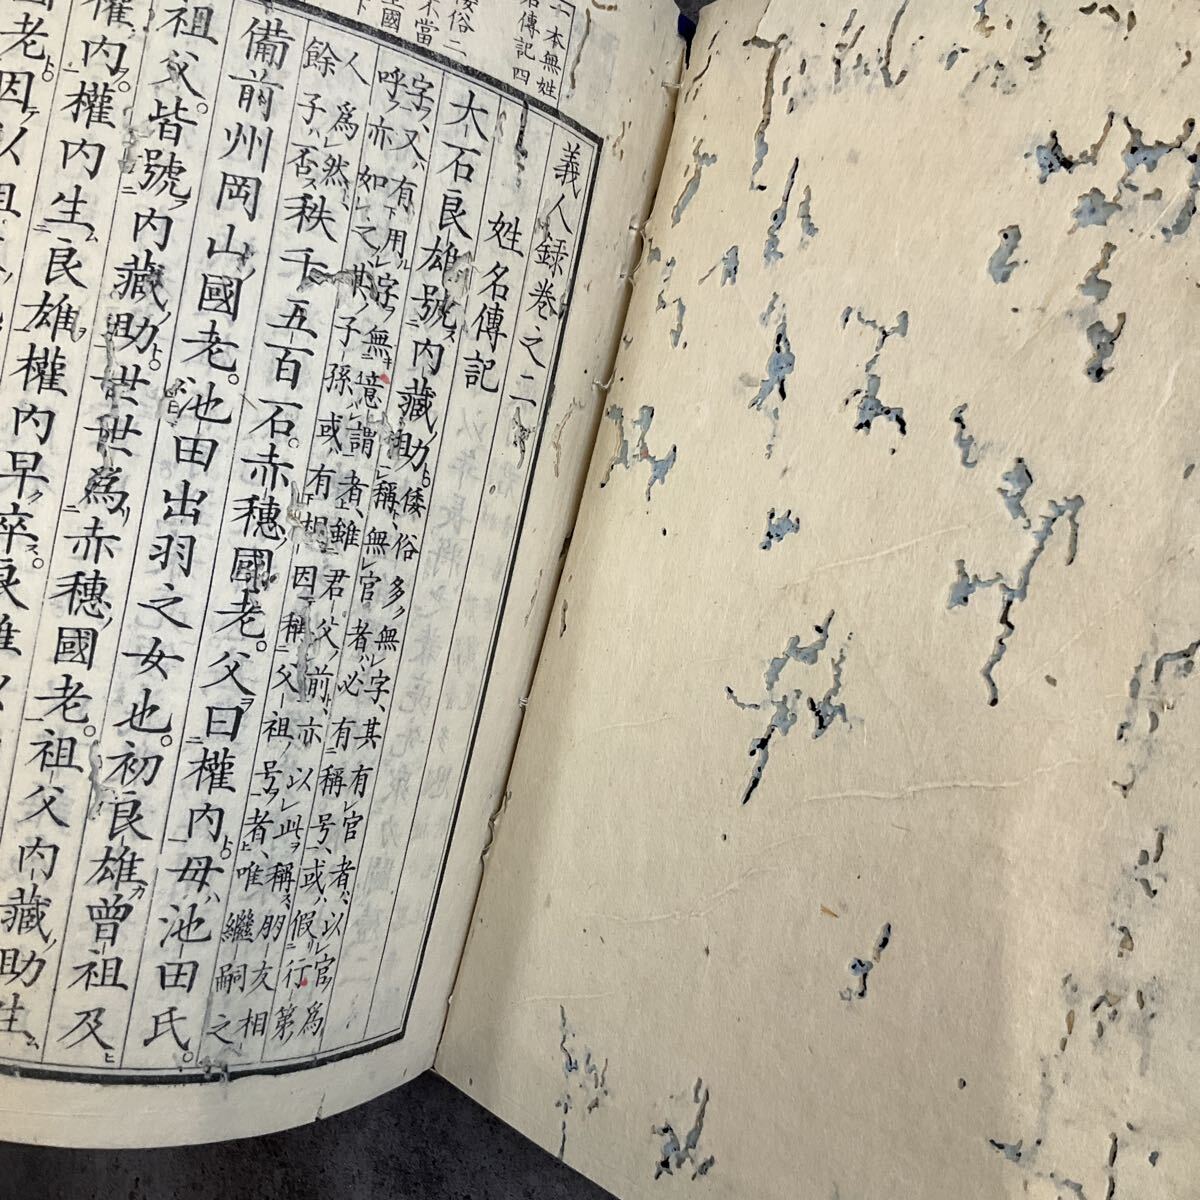 一本無姓
名傳記四
義人録巻之二
姓名傳記
大石良雄號内藏助
倭俗多無字其有官者以官爲
稱無官者必有稱号或假行第
字又有用字無憶謂者雖君父前亦以此稱朋友相
呼亦如之其子孫或有相因稱父祖号者唯繼嗣之
人爲然
餘子否
秩千五百石。赤穗國老。父曰權内。母池田氏。
備前州岡山國老。池田出羽之女也。初良雄曾祖及
祖父。皆號内藏助。世世爲赤穗國老。祖父内藏助生
權内。權内生良雄權内早卒。良雄以
老因以祖